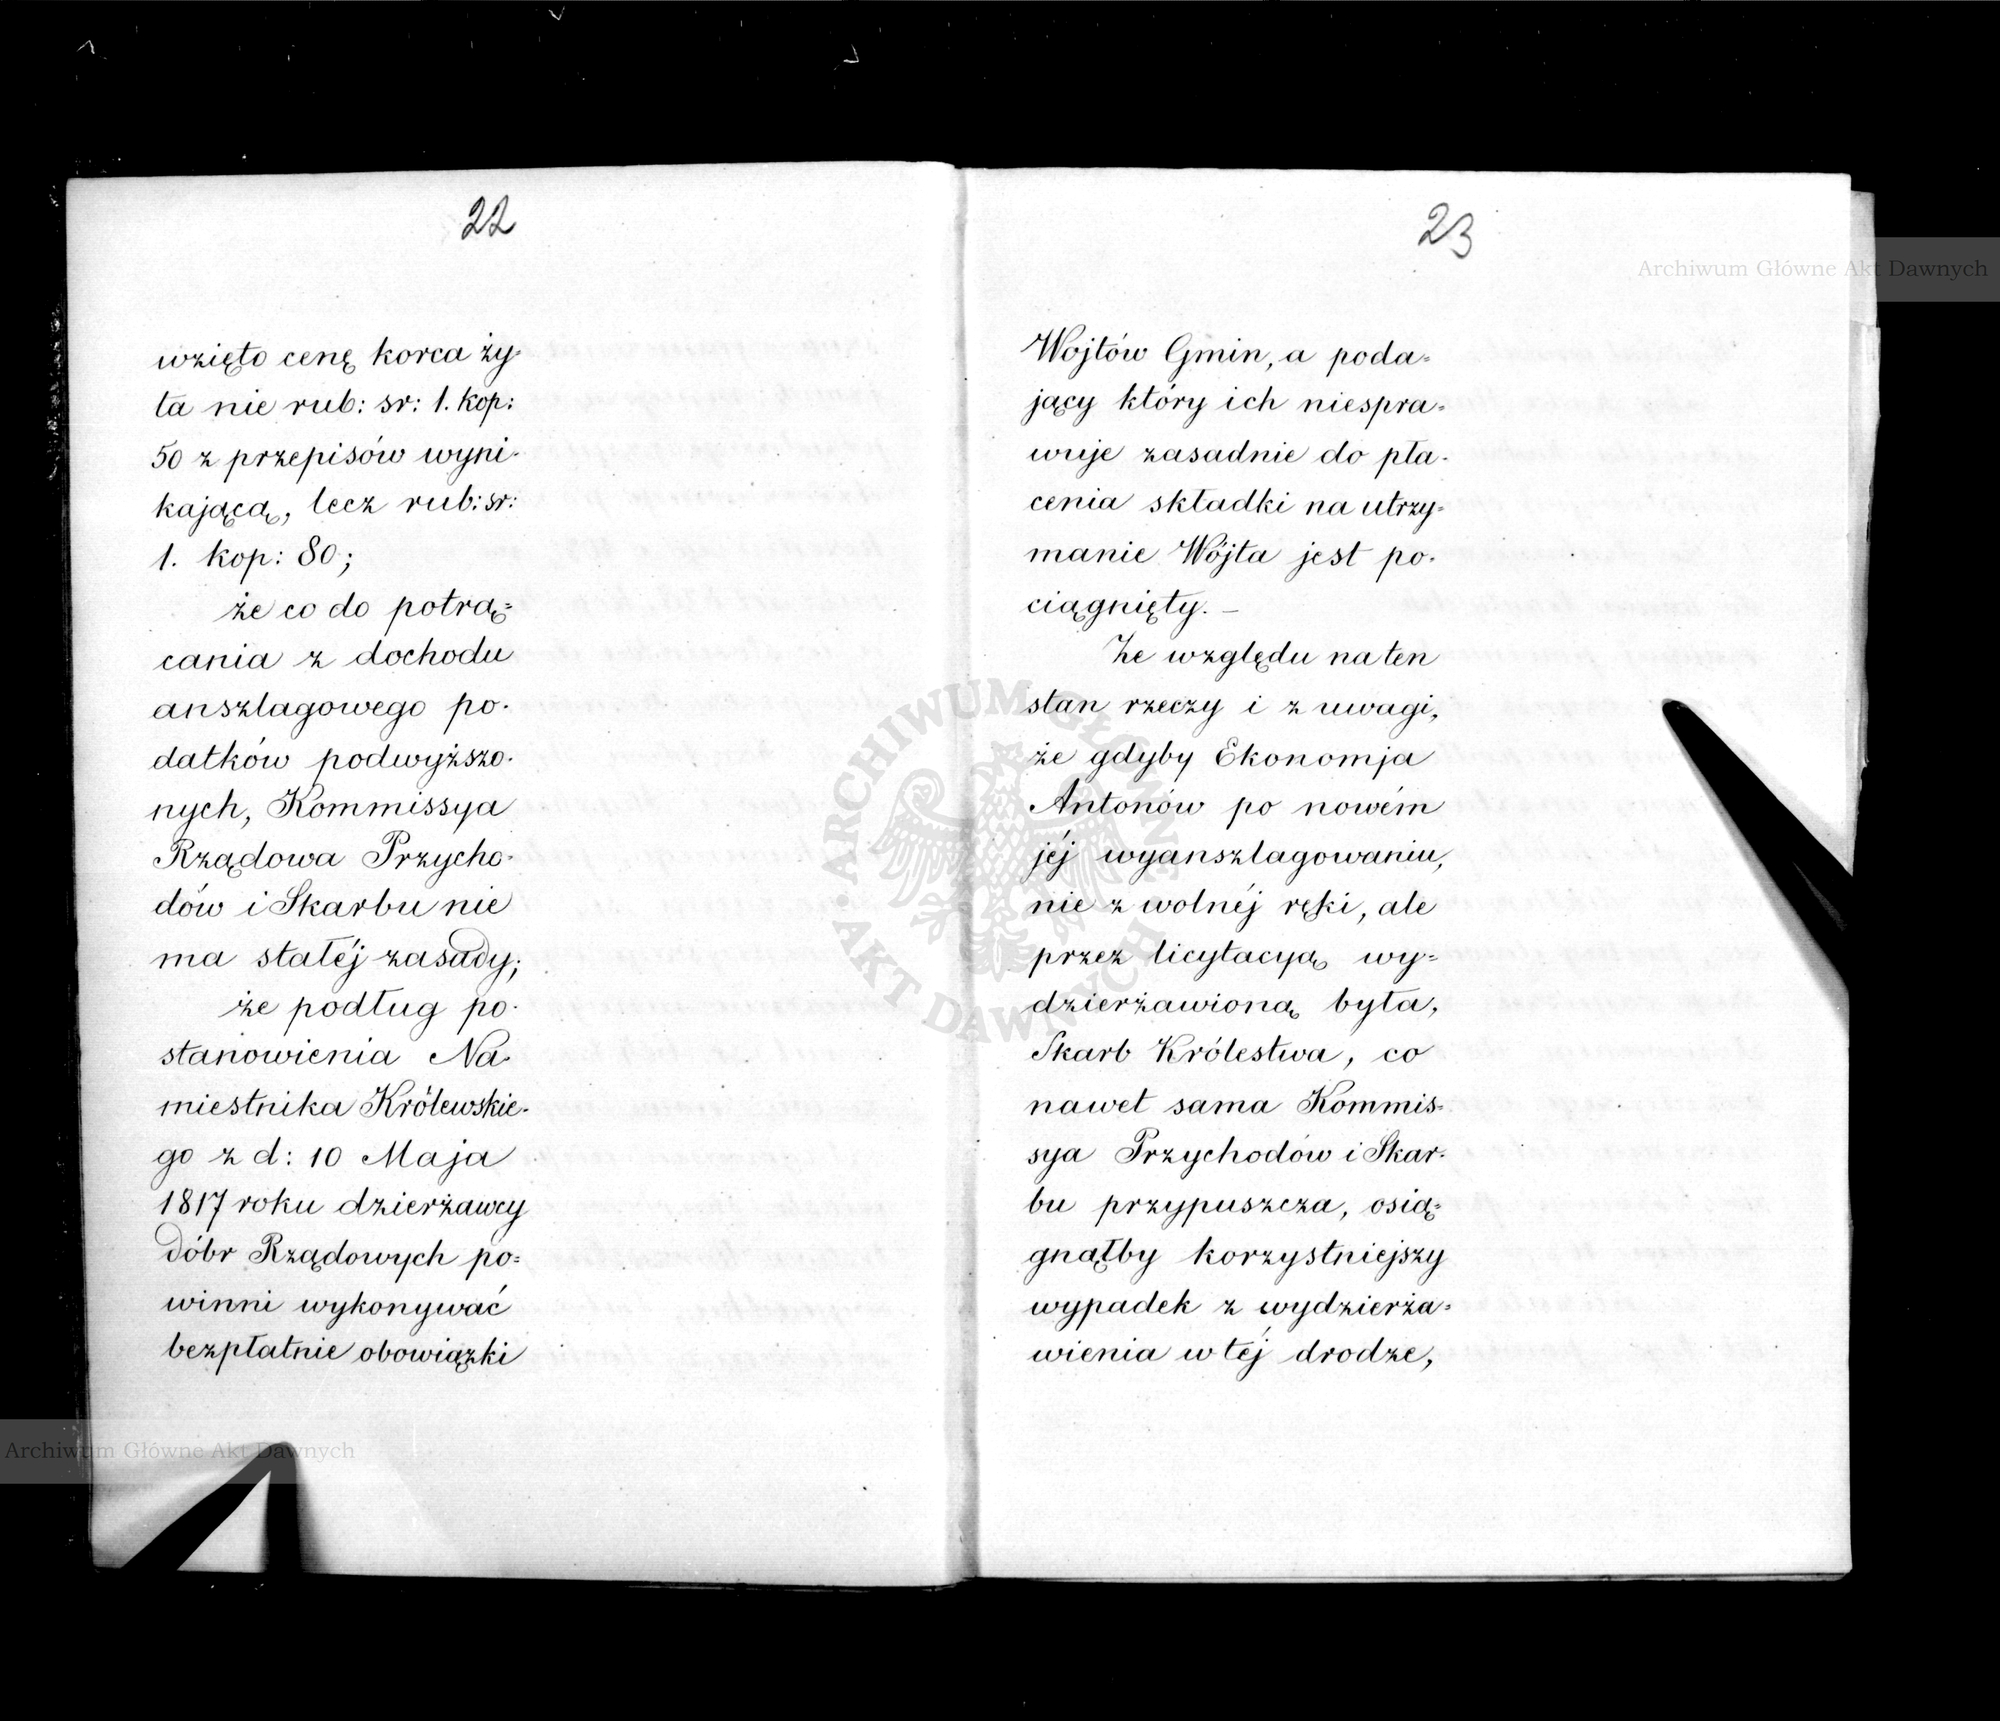 22
wzięto cenę korca ży-
ta nie rub: sr: 1. kop:
50 z przepisów wyni-
kającą, lecz rub: sr:
1. kop: 80;
że co do potrą=
cania z dochodu
anszlagowego po-
datków podwyższo-
nych, Kommissya
Rządowa Przycho-
dów i Skarbu nie
ma stałéj zasady;
że podług po-
stanowienia Na-
miestnika Królewskie-
go z d: 10 Maja
1817 roku dzierżawcy
dóbr Rządowych po=
winni wykonywać
bezpłatnie obowiązki
23
Wojtów Gmin, a poda=
jący który ich niespra=
wuje zasadnie do pła-
cenia składki na utrzy=
manie Wójta jest po-
ciągnięty. —
Ze względu na ten
stan rzeczy i z uwagi,
że gdyby Ekonomja
Antonów po nowém
jéj wyanszlagowaniu,
nie z wolnéj ręki, ale
przez licytacyą wy=
dzierżawioną była,
Skarb Królestwa, co
nawet sama Kommis=
sya Przychodów i Skar-
bu przypuszcza, osią=
gnąłby korzystniejszy
wypadek z wydzierża=
wienia w téj drodze,
Archiwum Główne Akt Dawnych
Archiwum Główne Akt Dawnych
ARCHIWUM GŁÓWNE
AKT DAWNYCH